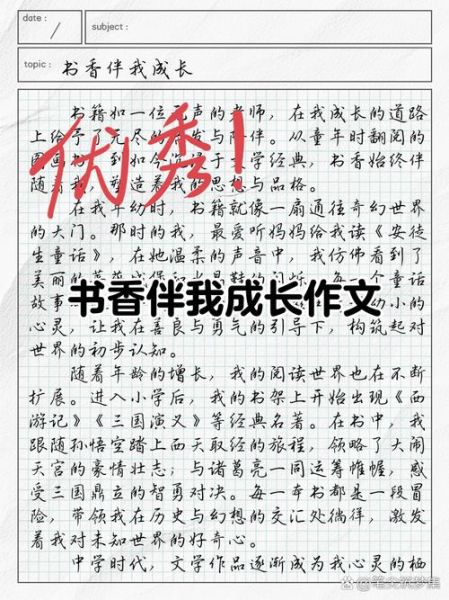 date :
subject :
topic : 书香伴我成长
书籍如一位无声的老师，在我成长的道路
上给予了无尽的启发与陪伴。从童年时翻阅的
图画书，到如今沉浸于文学经典，书香始终伴
随着我，塑造着我的思想与品格。
优秀！
在我年幼时，书籍就像一扇通往奇幻世界
的大门。那时的我，最爱听妈妈给我读《安徒
生童话》，在她温柔的声音中，我仿佛看到了
美丽的
每一个童话
故事
幼小的
书香伴我成长作文
心灵，让我在善良与勇气的引导下，构筑起对
世界的初步认知。
随着年龄的增长，我的阅读世界也在不断
扩展。进入小学后，我的书架上开始出现《西
游记》《三国演义》等经典名著。在书中，我
跟随孙悟空踏上西天取经的旅程，领略了大闹
天宫的豪情壮志；与诸葛亮一同运筹帷幄，感
受三国鼎立的智勇对决。每一本书都是一段冒
险，带领我在历史与幻想的交汇处徜徉，激发
着我对未知世界的好奇心。
中学时代，文学作品逐渐成为我心灵的栖